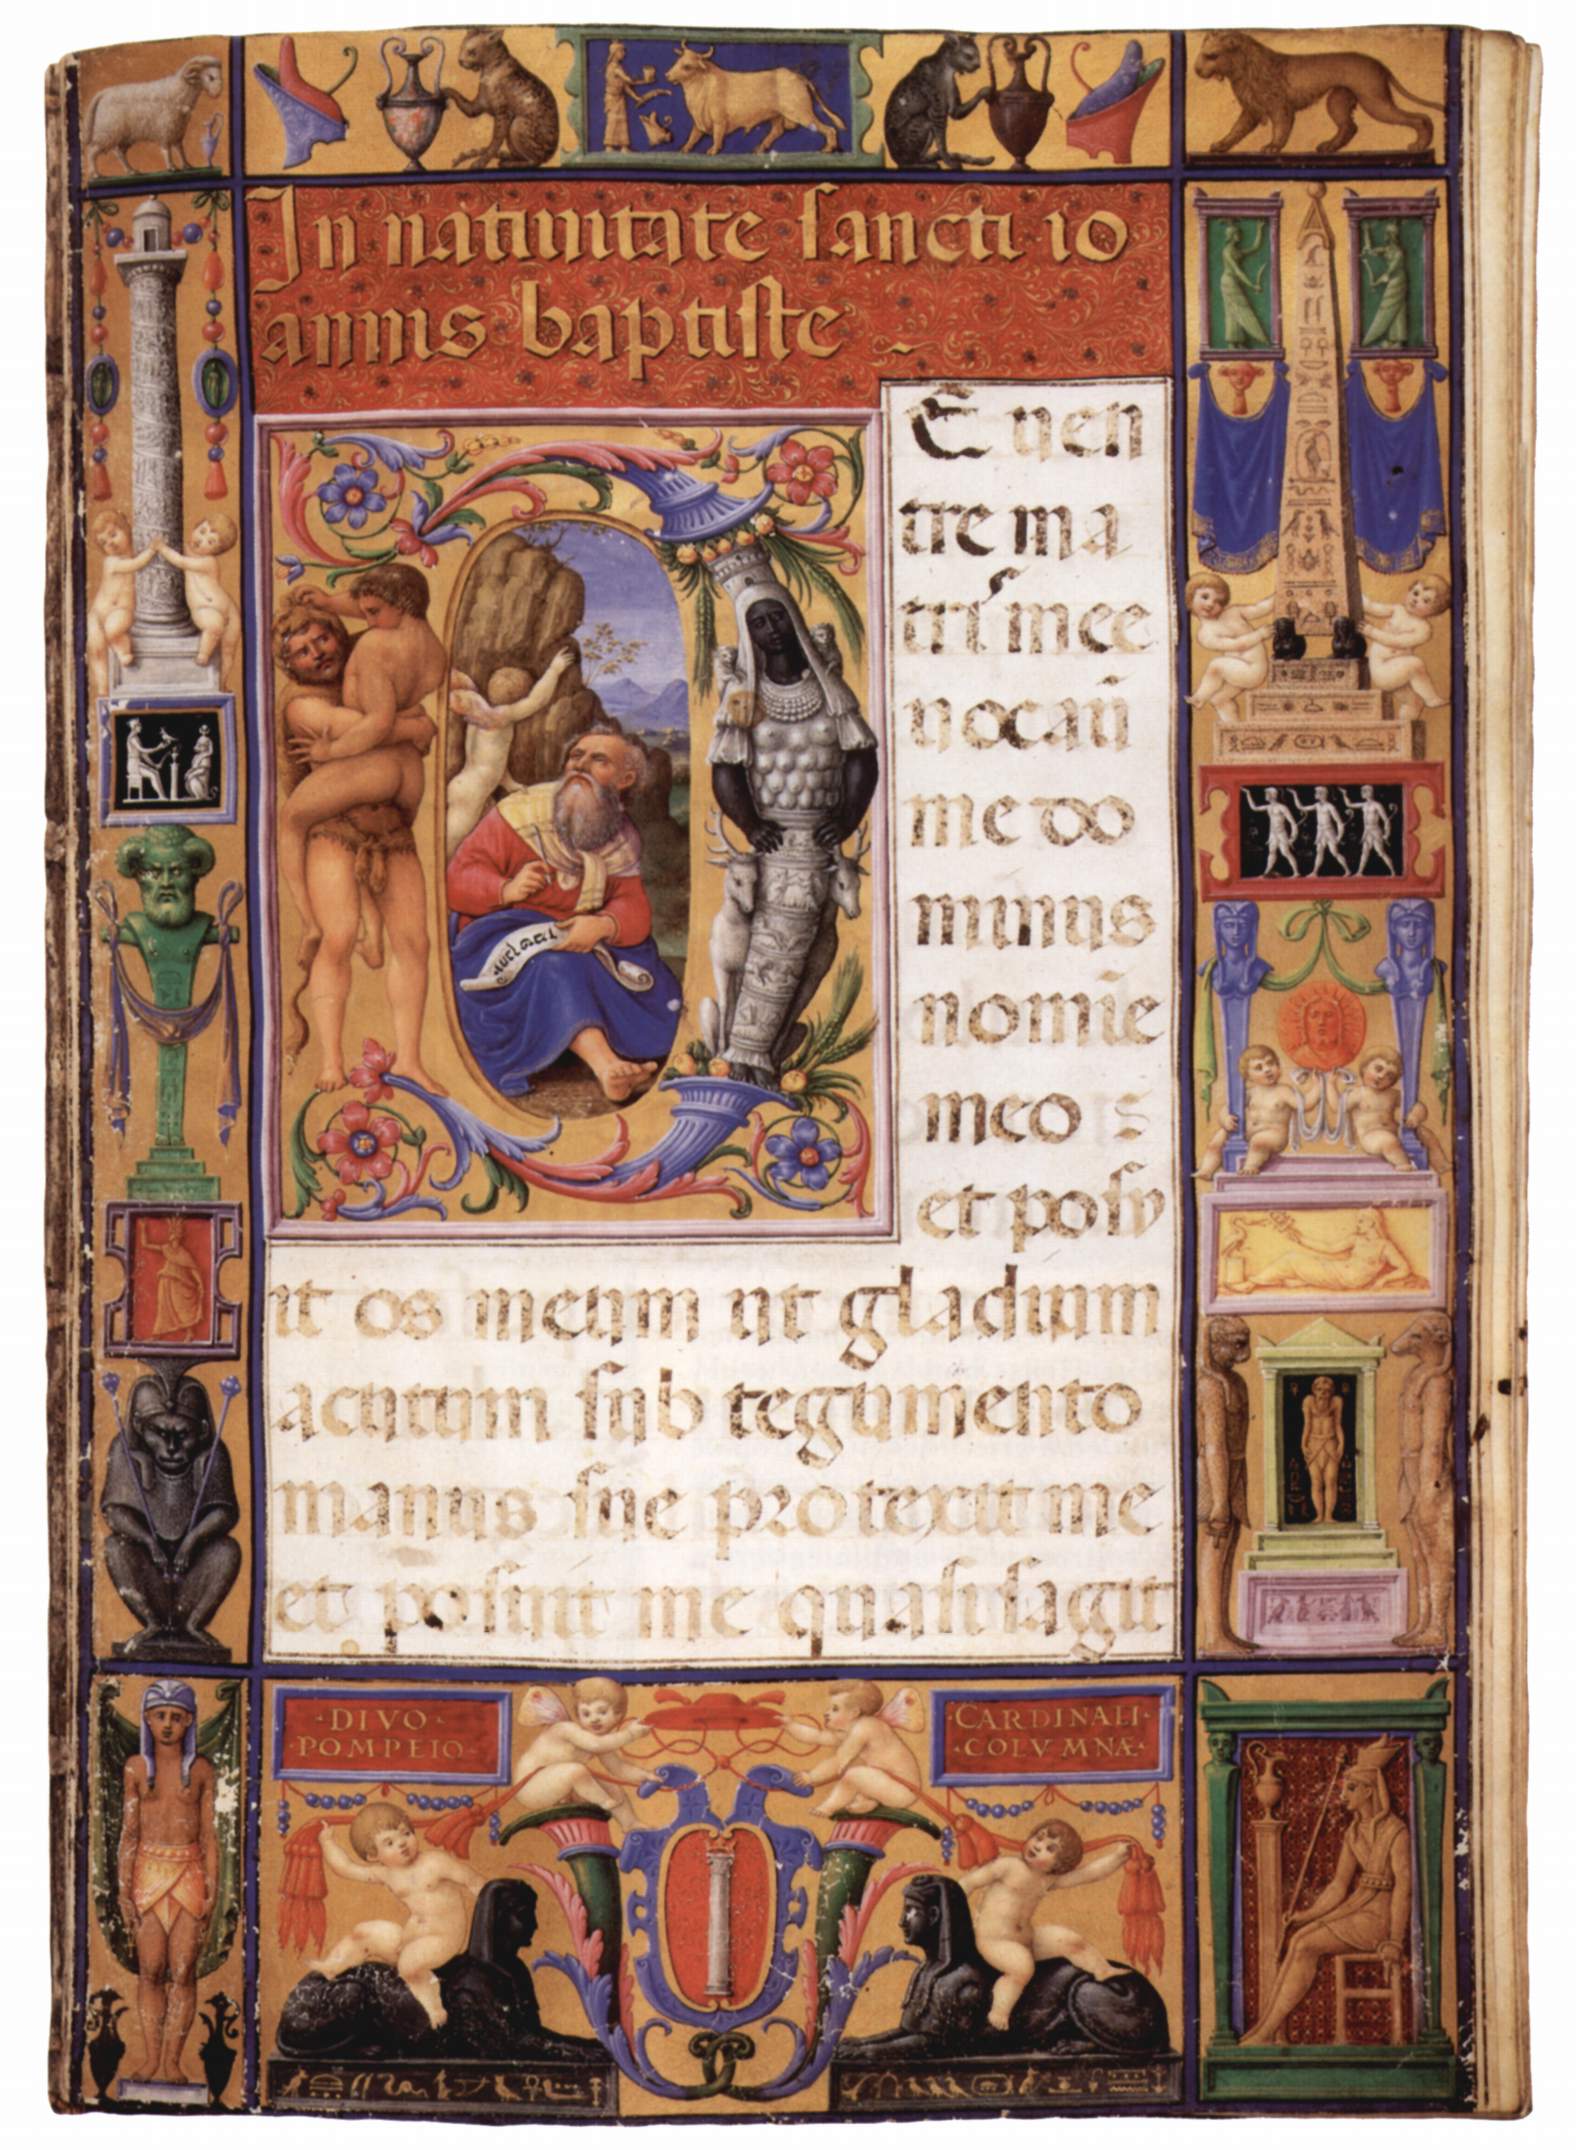 In natiuitate sancti io
annis baptiste
E uen
tre ma
tris mee
me do
minus
nomīe
meo :
et posu
it os meum ut gladium
acutum sub tegumento
manus sue protexit me
et posuit me quasi sagit
·DIVO·
·POMPEIO·
·CARDINALI·
·COLVMNÆ·